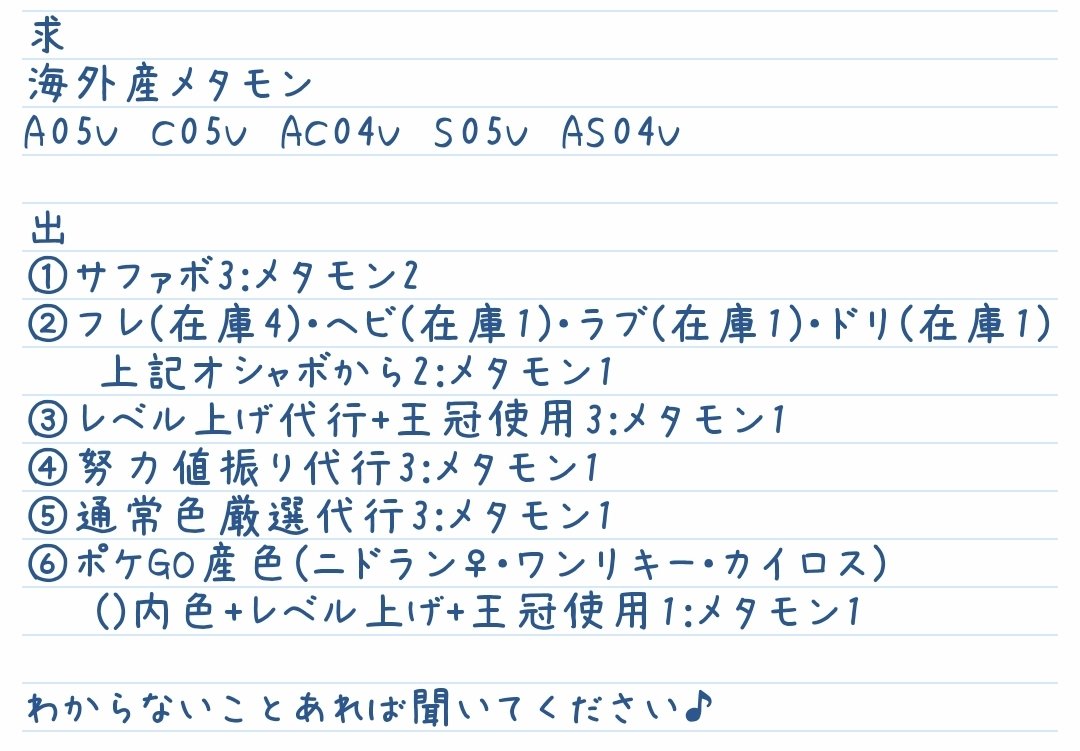 求
海外産メタモン
A05v C05v AC04v S05v AS04v
出
①サファボ3:メタモン2
②フレ(在庫4)・ヘビ(在庫1)・ラブ(在庫1)・ドリ(在庫1)
上記オシャボから2:メタモン1
③レベル上げ代行+王冠使用3:メタモン1
④努力値振り代行3:メタモン1
⑤通常色厳選代行3:メタモン1
⑥ポケGO産色(ニドラン♀・ワンリキー・カイロス)
()内色+レベル上げ+王冠使用1:メタモン1
わからないことあれば聞いてください♪